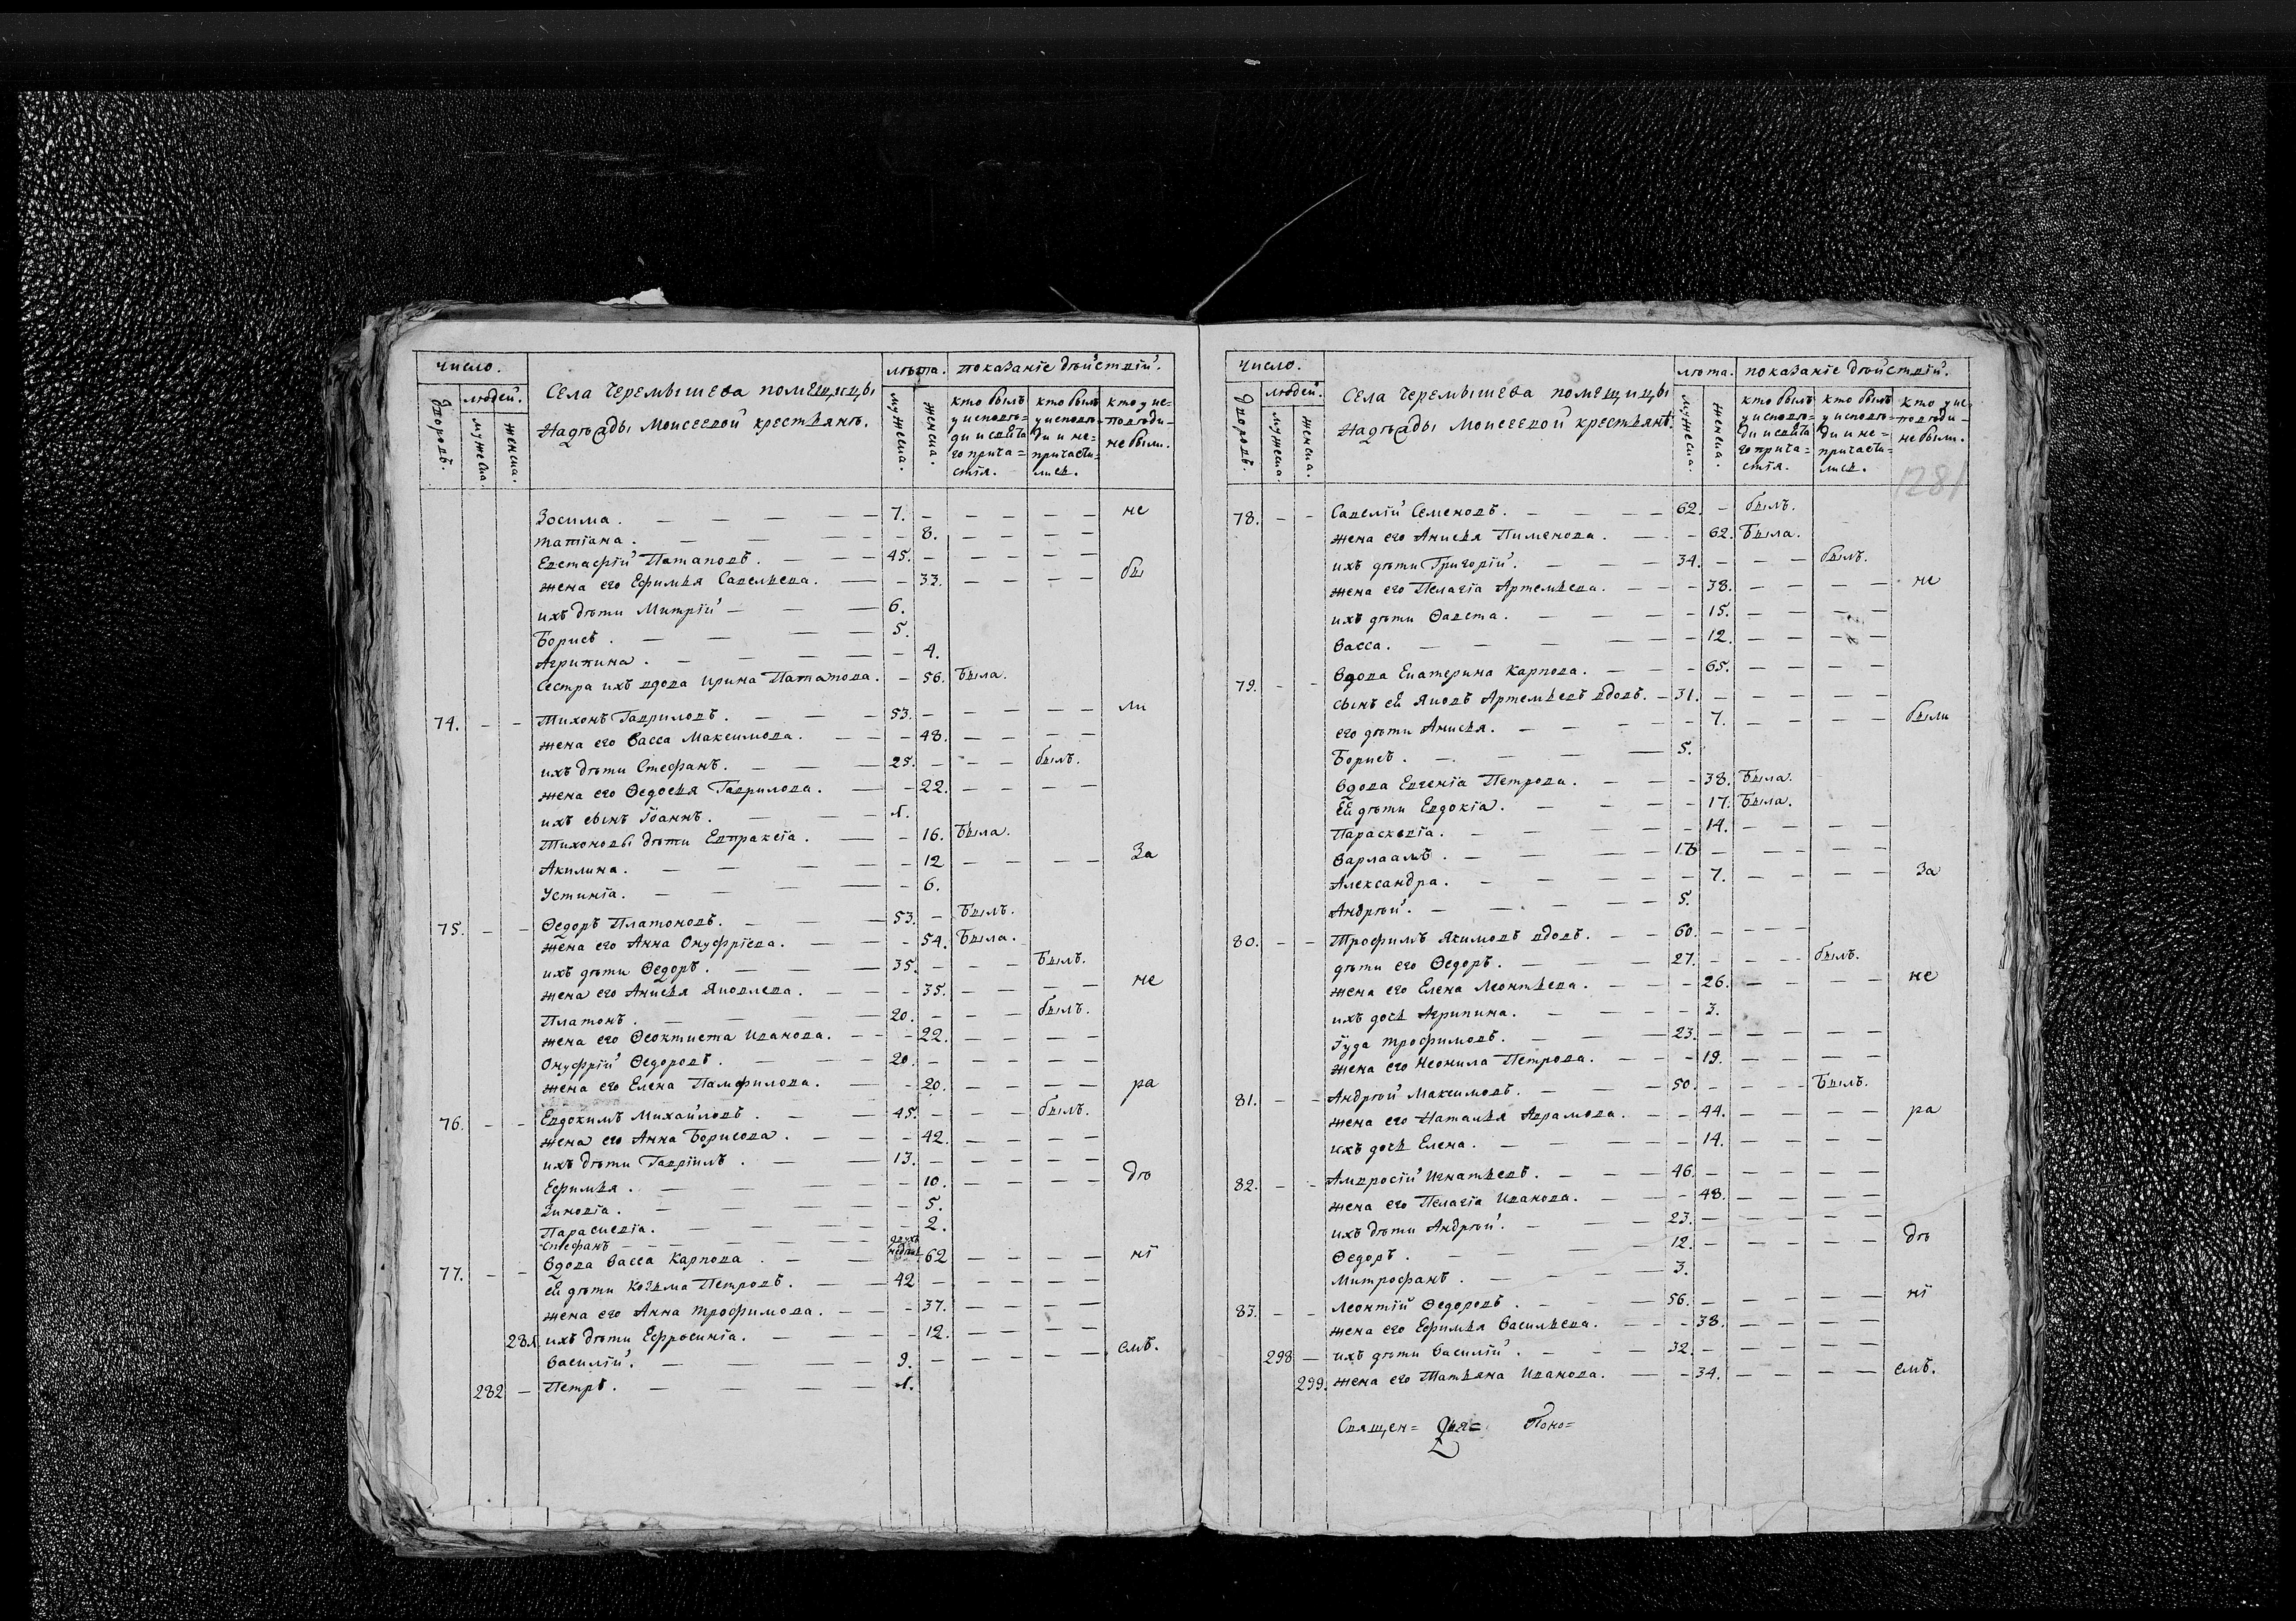 число. лѣта. показанїе дѣйствїй.
людей.
Села Черемышева помѣщицы
Надѣжды Моисеевой крестьянъ.
дворовъ. мужеска. женска. мужеска. женска.
кто былъ у исповѣди и святаго причастїя.
кто былъ у исповѣди и не причастились.
кто у исповѣди не были.
Зосима. 7. не
Татїана. 8.
Евстафїй Патаповъ. 45.
жена его Ефимья Савельева. 33. бы
ихъ дѣти Митрїй 6.
Борисъ. 5.
Агрипина. 4.
Сестра ихъ вдова Ирина Патапова. 56. Была.
74. Тихонъ Гавриловъ. 53. ли
жена его Васса Максимова. 48.
ихъ дѣти Стефанъ. 25. былъ.
жена его Ѳедосья Гаврилова. 22.
ихъ сынъ Їоаннъ. 1.
Тихоновы дѣти Евпраксїа. 16. Была.
Акилина. 12 За
Устинїа. 6.
75. Ѳедоръ Платоновъ. 53. Былъ.
жена его Анна Онуфрїева. 54. Была.
ихъ дѣти Ѳедоръ. 35. Былъ.
жена его Анисья Яковлева. 35. не
Платонъ. 20. былъ.
жена его Ѳеоктиста Иванова. 22.
Онуфрїй Ѳедоровъ. 20.
жена его Елена Памфилова. 20. ра
76. Евдокимъ Михайловъ. 45. былъ.
жена его Анна Борисова. 42.
ихъ дѣти Гаврїилъ. 13.
Ефимья. 10. дѣ
Зиновїа. 5.
Параскевїа. 2.
Стефанъ двухъ недѣль
77. Вдова Васса Карпова. 62 нї
ей дѣти Козьма Петровъ. 42
жена его Анна Трофимова. 37.
281. ихъ дѣти Ефросинїа. 12.
Василїй. 9. емъ.
282 Петръ. 1.
число. лѣта. показанїе дѣйствїй.
людей.
Села Черемышева помѣщицы
Надѣжды Моисеевой крестьянъ.
дворовъ. мужеска. женска. мужеска. женска.
кто былъ у исповѣди и святаго причастїя.
кто былъ у исповѣди и не причастились.
кто у исповѣди не были.
1281
78. Савелїй Семеновъ. 62. былъ.
жена его Анисья Пименова. 62. Была.
ихъ дѣти Григорїй. 34. былъ.
жена его Пелагїа Артемьева. 38. не
ихъ дѣти Ѳавста. 15.
Васса. 12.
79. Вдова Екатерина Карпова. 65.
сынъ ей Яковъ Артемьевъ вдовъ. 31.
его дѣти Анисья. 7. были
Борисъ. 5.
Вдова Евгенїа Петрова. 38. Была.
Ей дѣти Евдокїа. 17. Была.
Параскевїа. 14.
Варлаамъ.
Александра. 7. За
Андрѣй. 5.
80. Трофимъ Якимовъ вдовъ. 60.
дѣти его Ѳедоръ. 27. былъ.
жена его Елена Леонтьева. 26. не
ихъ дочь Агрипина. 3.
Їуда Трофимовъ. 23.
жена его Неонила Петрова. 19.
81. Андрѣй Максимовъ. 50. Былъ.
жена его Наталья Аврамова. 44. ра
ихъ дочь Елена. 14.
82. Амвросїй Игнатьевъ. 46.
жена его Пелагїа Иванова. 48.
ихъ дѣти Андрѣй. 23.
Ѳедоръ. 12. дѣ
Митрофанъ. 3.
83. Леонтїй Ѳедоровъ. 56. нї
жена его Ефимья Васильева. 38.
298 ихъ дѣти Василїй. 32.
299. жена его Татьяна Иванова. 34. емъ.
Священ= Дья= Поно=